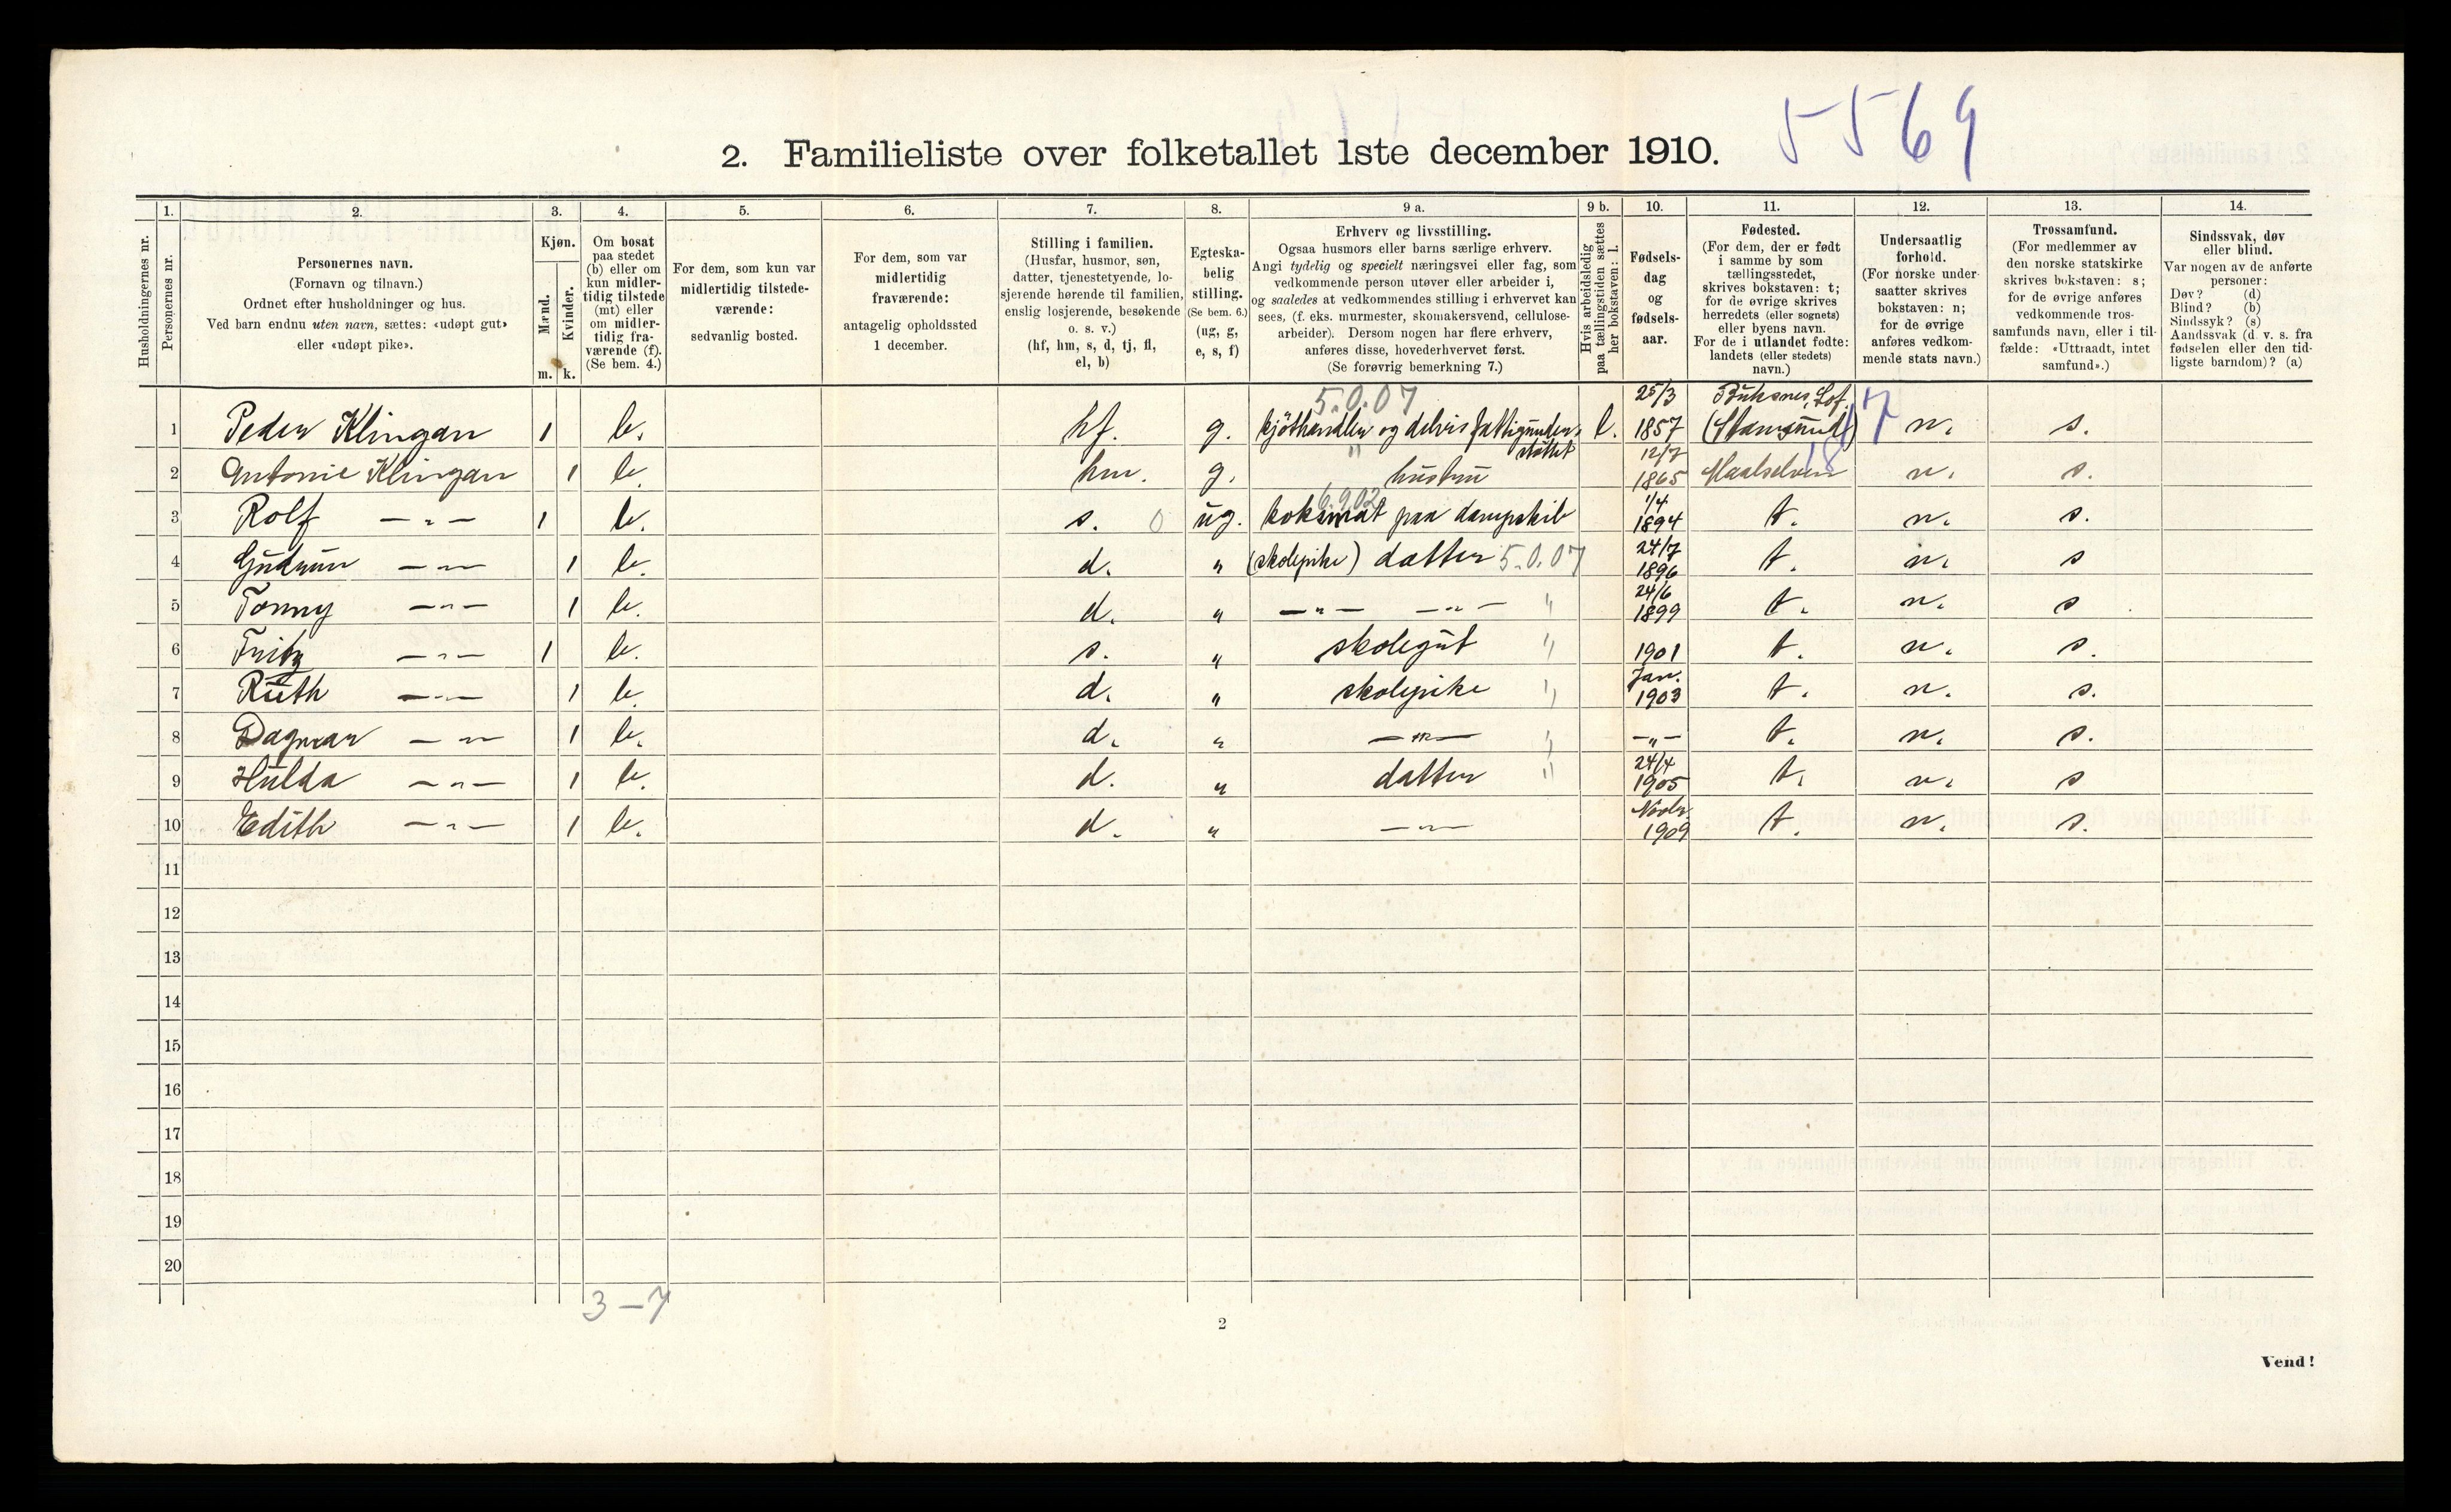 5569
2. Familieliste over folketallet 1ste december 1910.
1. 2. 3. 4. 5. 6. 7. 8. 9 a. 9 b. 10. 11. 12. 13. 14.
Husholdningernes nr.
Personernes nr.
Personernes navn.
(Fornavn og tilnavn.)
Ordnet efter husholdninger og hus.
Ved barn endnu uten navn, sættes: «udøpt gut»
eller «udøpt pike».
Kjøn.
Mænd.
Kvinder.
m. k.
Om bosat
paa stedet
(b) eller om
kun midler-
tidig tilstede
(mt) eller
om midler-
tidig fra-
værende (f).
(Se bem. 4.)
For dem, som kun var
midlertidig tilstede-
værende:
sedvanlig bosted.
For dem, som var
midlertidig
fraværende:
antagelig opholdssted
1 december.
Stilling i familien.
(Husfar, husmor, søn,
datter, tjenestetyende, lo-
sjerende hørende til familien,
enslig losjerende, besøkende
o. s. v.)
(hf, hm, s, d, tj, fl,
el, b)
Egteska-
belig
stilling.
(Se bem. 6.)
(ug, g,
e, s, f)
Erhverv og livsstilling.
Ogsaa husmors eller barns særlige erhverv.
Angi tydelig og specielt næringsvei eller fag, som
vedkommende person utøver eller arbeider i,
og saaledes at vedkommendes stilling i erhvervet kan
sees, (f. eks. murmester, skomakersvend, cellulose-
arbeider). Dersom nogen har flere erhverv,
anføres disse, hovederhvervet først.
(Se forøvrig bemerkning 7.)
Hvis arbeidsledig
paa tællingstiden sættes
her bokstaven: l.
Fødsels-
dag
og
fødsels-
aar.
Fødested.
(For dem, der er født
i samme by som
tællingsstedet,
skrives bokstaven: t;
for de øvrige skrives
herredets (eller sognets)
eller byens navn.
For de i utlandet fødte:
landets (eller stedets)
navn.)
Undersaatlig
forhold.
(For norske under-
saatter skrives
bokstaven: n;
for de øvrige
anføres vedkom-
mende stats navn.)
Trossamfund.
(For medlemmer av
den norske statskirke
skrives bokstaven: s;
for de øvrige anføres
vedkommende tros-
samfunds navn, eller i til-
fælde: «Uttraadt, intet
samfund».)
Sindssvak, døv
eller blind.
Var nogen av de anførte
personer:
Døv? (d)
Blind? (b)
Sindssyk? (s)
Aandssvak (d. v. s. fra
fødselen eller den tid-
ligste barndom)? (a)
5.0.07 25/3 Buksnes, Lof. 17
1 Peder Klingan 1 b. hf. g. kjöthandler og delvis fattigunder- l. 1857 (Stamsund) n. s.
støttet 12/7 18
2 Antonie Klingan 1 b. hm. g. " hustru 1865 Maalselven n. s.
6.9.02 1/4
3 Rolf —"— 1 b. s. 0 ug. koksmat paa dampskib 1894 t. n. s.
24/7
4 Gudrun —"— 1 b. d. " (skolepike) datter 5.0.07 1896 t. n. s
24/6
5 Tonny —"— 1 b. d. " —"— —"— " 1899 t. n. s
6 Fritz —"— 1 b. s. " skolegut " 1901 t. n. s.
Jan.
7 Ruth —"— 1 b. d. " skolepike " 1903 t. n. s.
8 Dagmar —"— 1 b. d. " —"— " —"— t. n. s.
24/4
9 Hulda —"— 1 b. d. " datter " 1905 t. n. s
Novbr.
10 Edith —"— 1 b. d. " —"— 1909 t. n. s.
11
12
13
14
15
16
17
18
19
20
3 – 7
2
Vend!